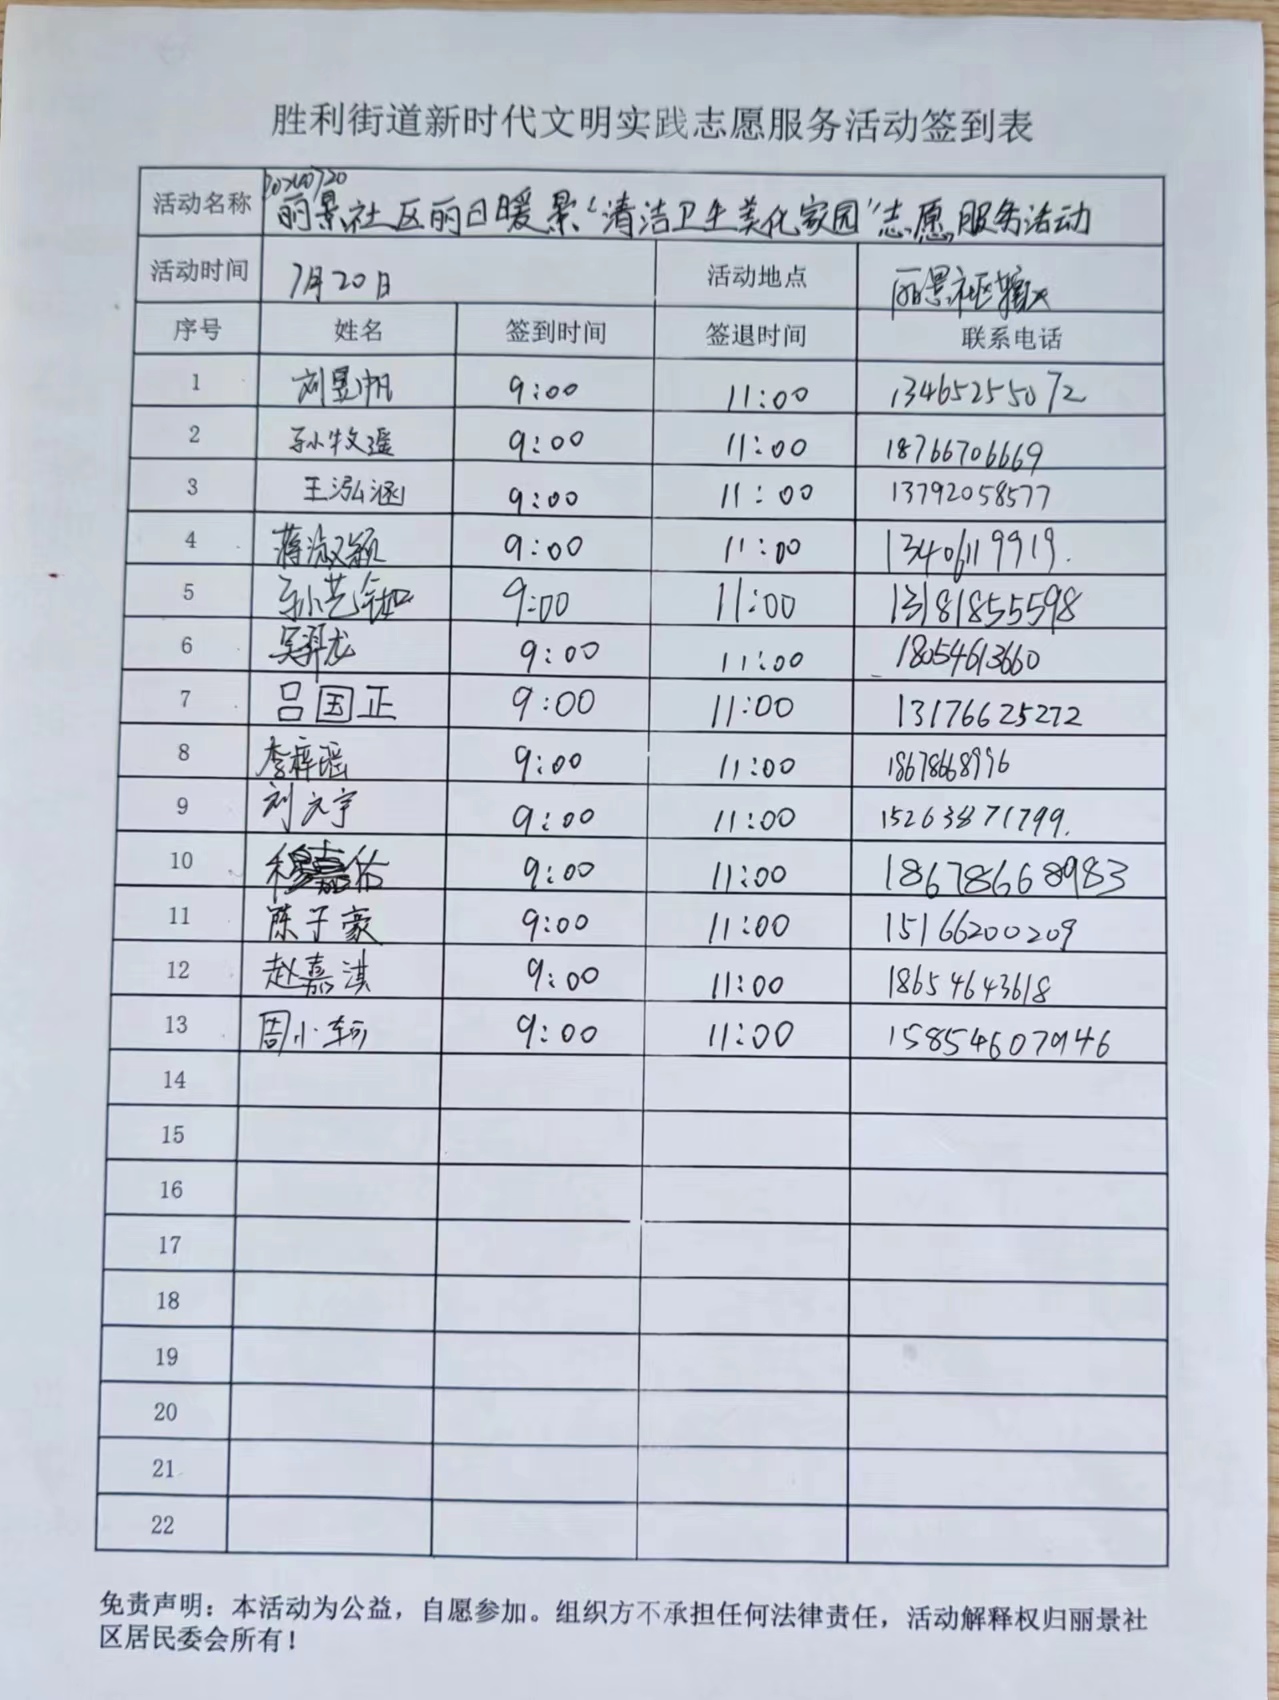 胜利街道新时代文明实践志愿服务活动签到表
活动名称 丽景社区丽日暖景“清洁卫生美化家园”志愿服务活动
活动时间 7月20日 活动地点 丽景社区
序号 姓名 签到时间 签退时间 联系电话
1 刘昱帆 9:00 11:00 13465255072
2 孙牧遥 9:00 11:00 18766706669
3 王泓涵 9:00 11:00 13792058577
4 蒋淑颖 9:00 11:00 13406119919.
5 孙艺铷 9:00 11:00 13181855598
6 吴羿龙 9:00 11:00 18054613660
7 吕国正 9:00 11:00 13176625272
8 李梓瑶 9:00 11:00 18678668996
9 刘元宇 9:00 11:00 15263871799.
10 穆嘉佑 9:00 11:00 18678668983
11 陈子豪 9:00 11:00 15166200209
12 赵嘉淇 9:00 11:00 18654643618
13 周小轲 9:00 11:00 15854607946
14
15
16
17
18
19
20
21
22
免责声明：本活动为公益，自愿参加。组织方不承担任何法律责任，活动解释权归丽景社
区居民委会所有！